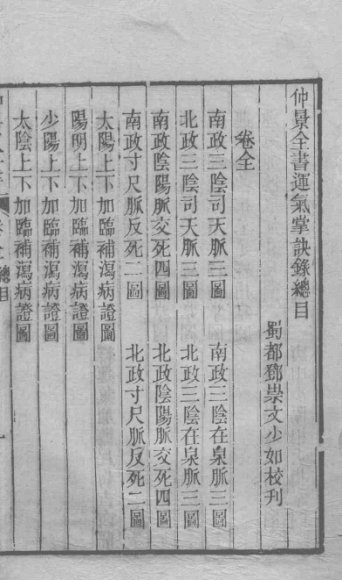 仲景全書運氣掌訣錄總目
蜀都鄧崇文少如校刊
卷全
南政三陰司天脈三圖 南政三陰在泉脈三圖
北政三陰司天脈三圖 北政三陰在泉脈三圖
南政陰陽脈交死四圖 北政陰陽脈交死四圖
南政寸尺脈反死二圖 北政寸尺脈反死二圖
太陽上下加臨補瀉病證圖
陽明上下加臨補瀉病證圖
少陽上下加臨補瀉病證圖
太陰上下加臨補瀉病證圖
總目